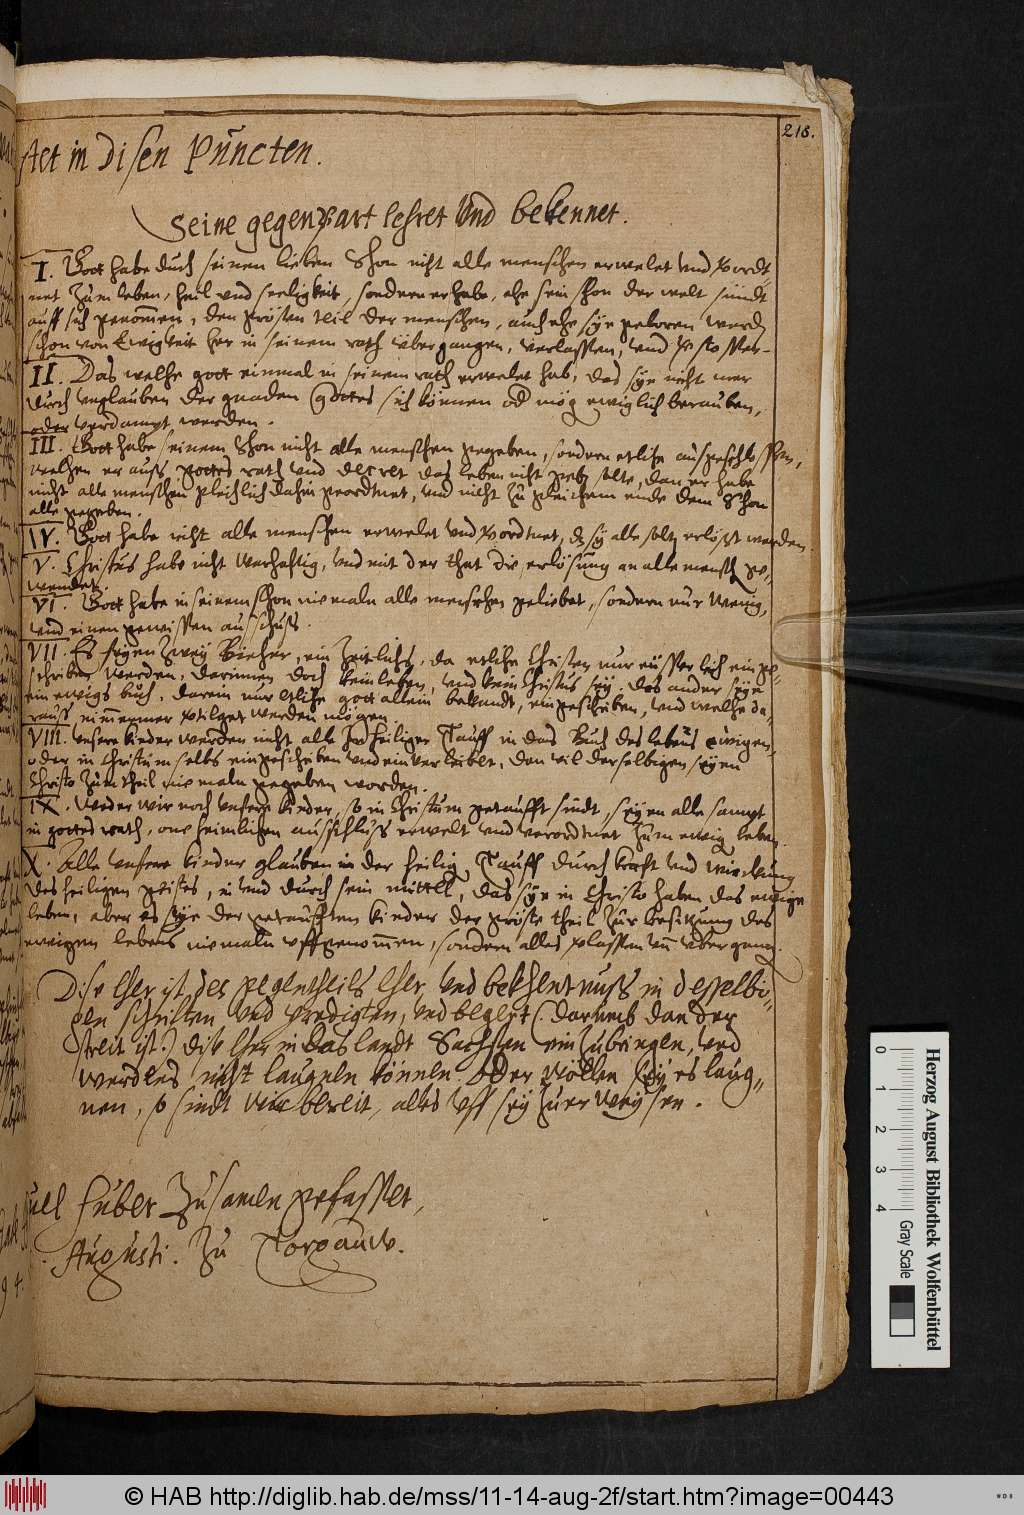 218.
stet in disen Puncten.
Seine gegenpart lehret und bekennet.
I. Gott habe durch seinen lieben Shon nicht alle menschen erwelet und verordt
net zum leben, heil und seeligkeit, sondern er habe, ehe sein shon der welt sündt
auff sich genommen, den grösten teil der menschen, auch ehe sye geboren werd
schon von Ewigkeit her in seinem rath übergangen, verlassen, und
II. Das welche gott einmal in seinem rath erwelet hab, das sye nicht mer
durch unglauben der gnaden Gottes sich können od mög ewiglich berauben,
oder verdampt werden.
III. Gott habe seinem Shon nicht alle menschen gegeben, sondern etliche ausgeschlossen,
welchen er auss gottes rath und decret das leben nicht geben solte, dan er habe
nicht alle menschen gleichlich dahin geordtnet, und nicht zu gleichem ende dem Shon
alle gegeben.
IV. Gott habe nicht alle menschen erwelet und verordtnet, dz sy alle solten erlösst werden.
V. Christus habe nicht warhafftig, und mit der that die erlösung an alle mensch ge-
wendet.
VI. Gott habe in seinem shon niemaln alle menschen geliebet, sondern nur wenig,
und einen gewissen ausschuss.
VII. Es seyen zwey Bücher, ein zeitlichs, da etliche Christen nur eüsserlich ein ge-
schriben werden, darinnen doch kein leben, und kein Christus sey. Das ander sye
ein ewigs buch, darein nur etliche gott allein bekandt, eingeschriben, und welche da-
rauss nimmermer vertilget werden mögen.
VIII. Unsere kinder werden nicht alle in heiliger Tauff in das Buch des lebens ewigen
oder in Christum selbs eingeschriben und einverleibet, dan vil derselbigen seyen
Christo zum theil niemaln gegeben worden.
IX. Weder wir noch unsere kinder, so in Christum getaufft sindt, seyen alle sampt
in gottes rath, one heimlichen ausschluss erwelt und verordtnet zum ewig leben.
X. Alle unsere kinder glauben in der heilig Tauff durch krafft und wirckung
des heiligen geistes, in und durch sein mittel, das sye in Christo haben das ewige
leben, aber es sye der getaufften kinder der gröste theil zur besitzung des
ewigen lebens niemaln uffgenommen, sondern alles verlassen und übergang.
Dise lher ist des gegentheils lher und bekhentnuss in desselbi-
gen schrifften und predigten, und begert (darumb dan der
streit ist.) dise lher in das landt Sachssen einzubringen, und
werdens nicht laugnen können. Oder wöllen sey es laug-
nen, so sindt wir bereit, alles uff sey zuerweysen.
uel Huber zusamen gefasset,
Augusti. zu Torgauw.
94.
Herzog August Bibliothek Wolfenbüttel
0 1 2 3 4 Gray Scale
© HAB http://diglib.hab.de/mss/11-14-aug-2f/start.htm?image=00443